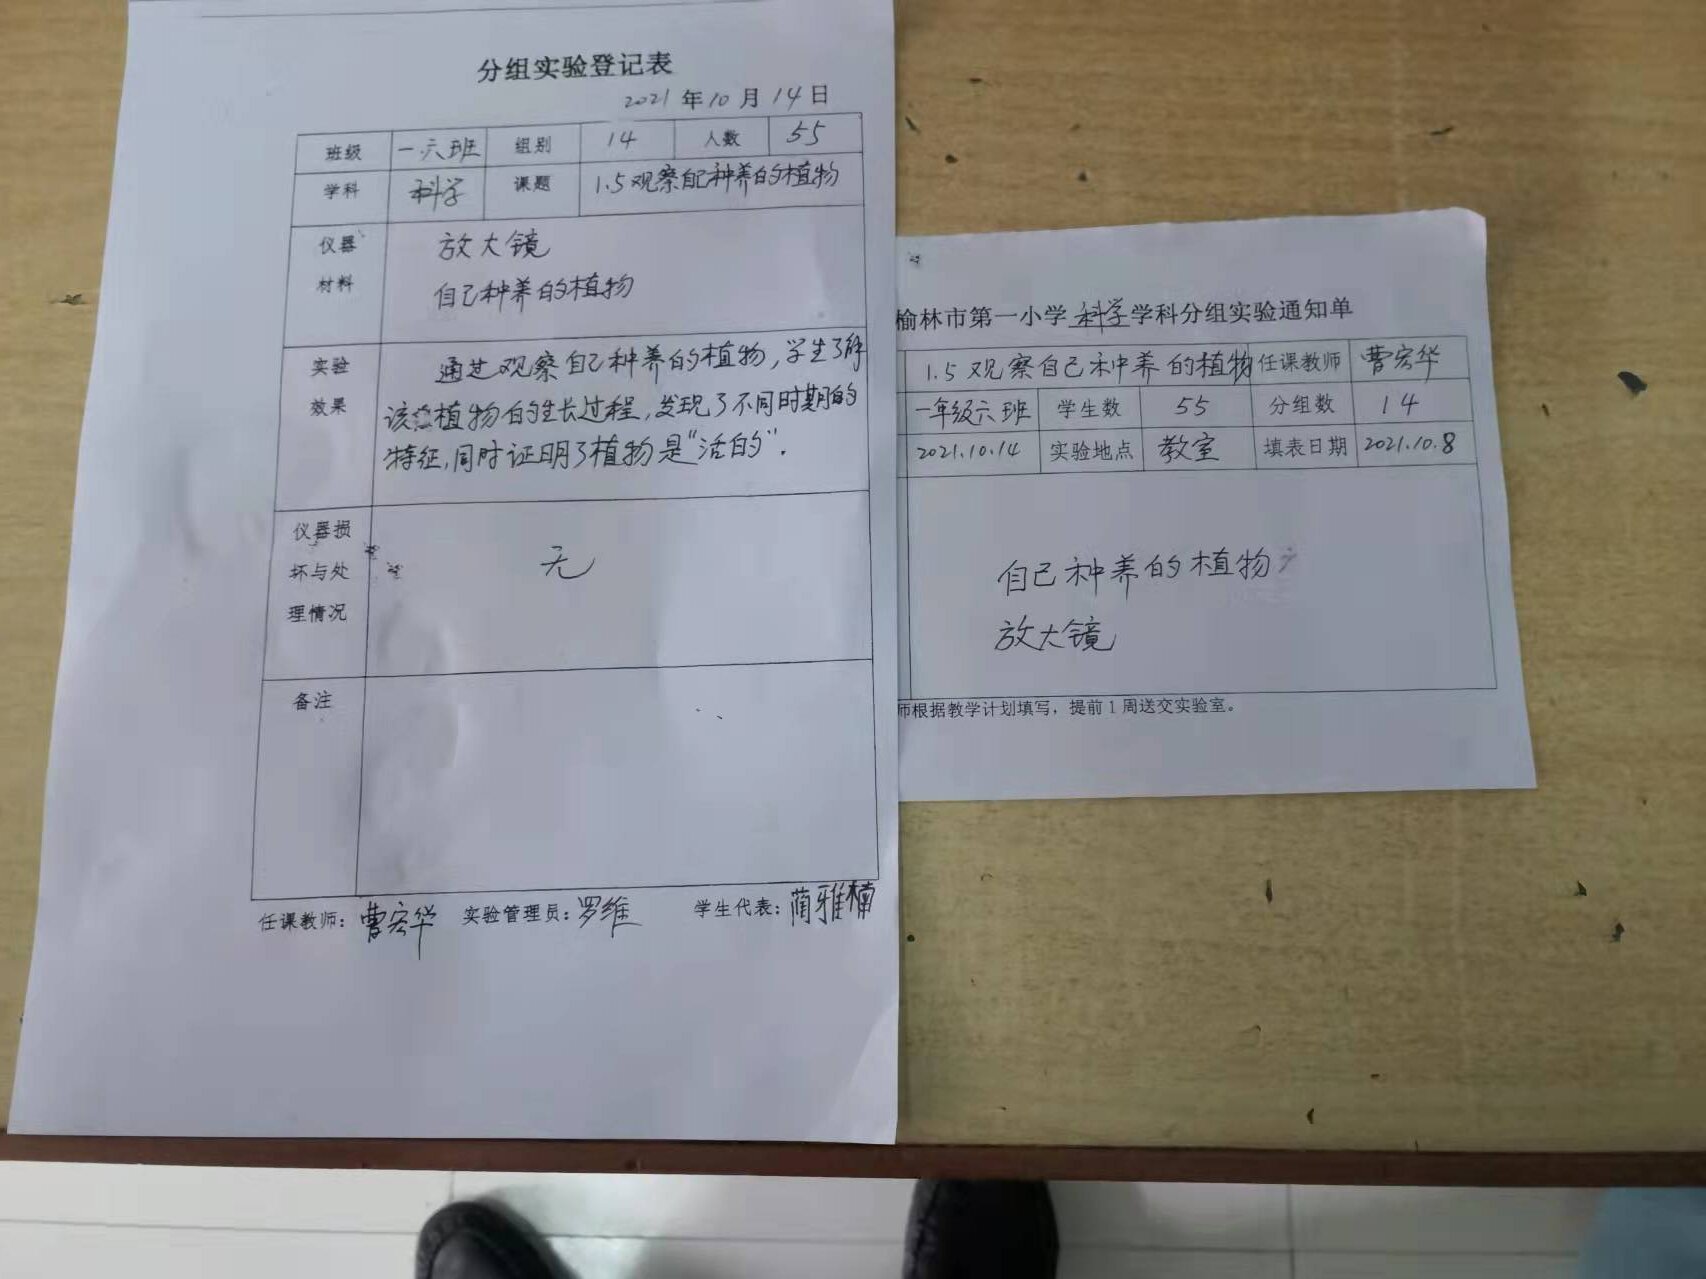 分组实验登记表
2021 年 10 月 14 日
班级 一.六班 组别 14 人数 55
学科 科学 课题 1.5 观察自己种养的植物
仪器 放大镜
材料 自己种养的植物
实验 通过观察自己种养的植物，学生了解
效果 该植物的生长过程，发现了不同时期的
特征，同时证明了植物是“活的”.
仪器损
坏与处 无
理情况
备注
任课教师：曹宏华 实验管理员：罗维 学生代表：蔺雅楠
榆林市第一小学 科学 学科分组实验通知单
1.5 观察自己种养的植物 任课教师 曹宏华
一年级六班 学生数 55 分组数 14
2021.10.14 实验地点 教室 填表日期 2021.10.8
自己种养的植物
放大镜
师根据教学计划填写，提前 1 周送交实验室。